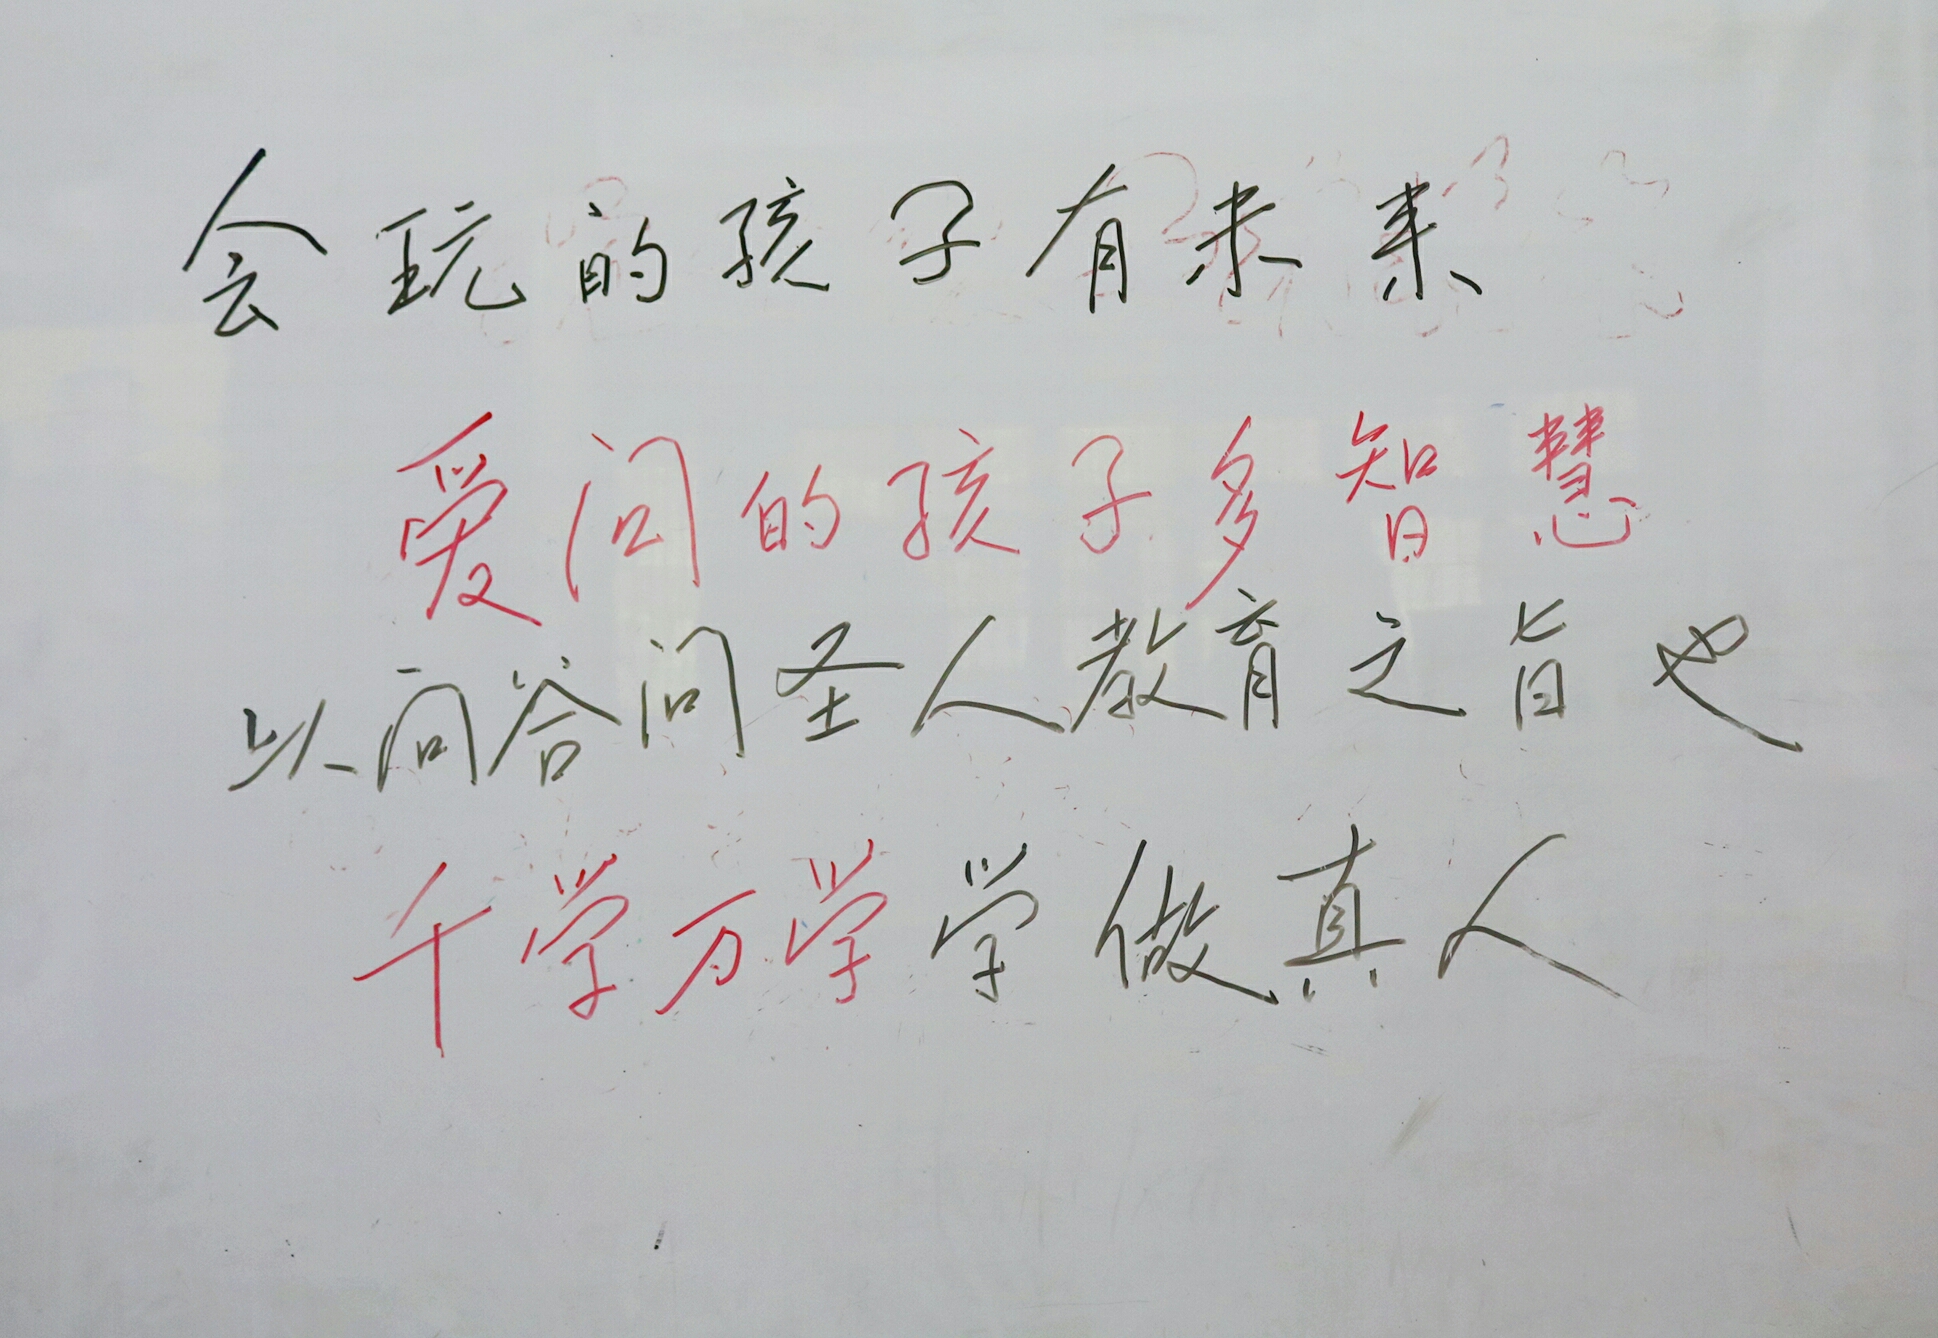 会玩的孩子有未来
爱问的孩子多智慧
以问答问圣人教育之旨也
千学万学学做真人